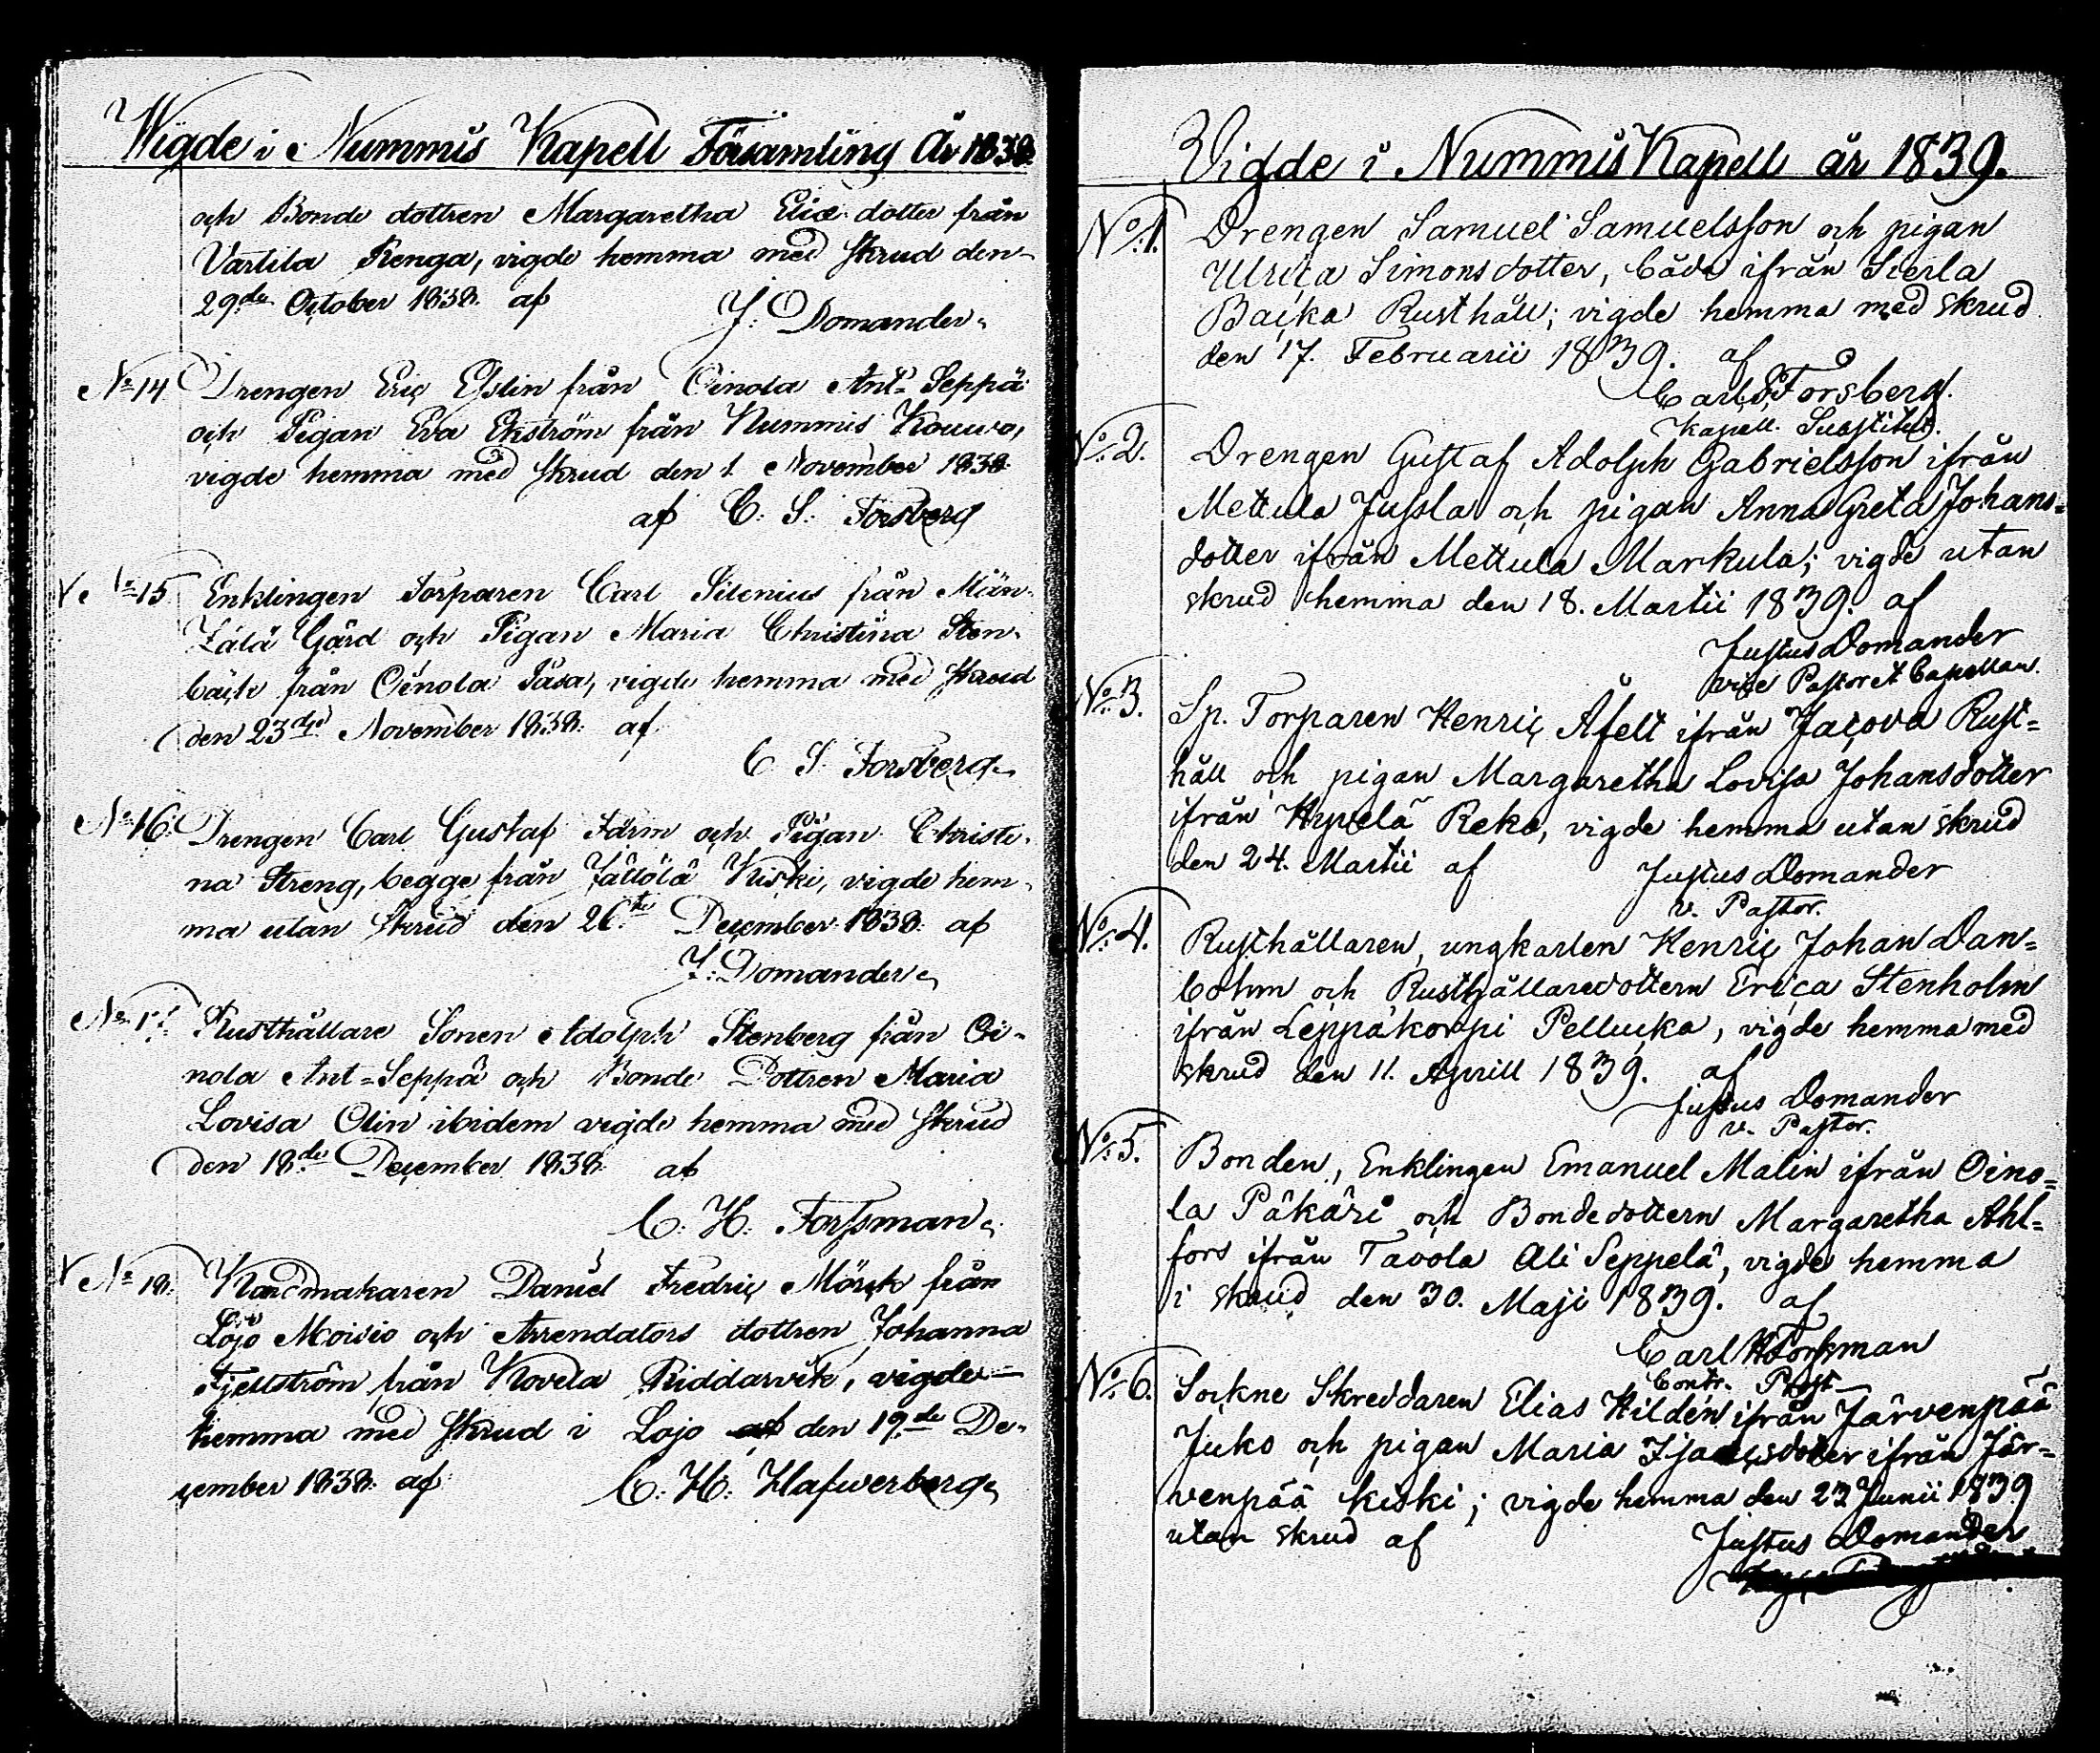 Wigde i Nummis Kapell Församling År 1838.
och Bonde dottren Margaretha Eliæ dotter från
Vartila Renga, vigde hemma med skrud den
29de October 1838. af
J. Domander
No 14 Drengen Eric Elslin från Oinola Ant-Seppä
och Pigan Eva Ekström från Nummis Kouvo,
vigde hemma med skrud den 1. November 1838.
af C. S. Forsberg
No 15 Enklingen Torparen Carl Silenius från Män-
Gård och Pigan Maria Christina Sten-
bäck från Oinola Pasa, vigde hemma med skrud
den 23dje November 1838. af
C S. Forsberg
No 16. Drengen Carl Gustaf Färm och Pigan Christi-
na Streng, begge från Jättölä Kiski, vigde hem-
ma utan skrud den 26te December 1838. af
J. Domander
No 17. Rusthållare Sonen Adolph Stenberg från Oi-
nola Ant-Seppä och Bonde Dottren Maria
Lovisa Olin ibidem vigde hemma med skrud
den 18de December 1838 af
C. H. Forssman
No 18. Daniel Fredric Mörck från
Lojo Moisio och Arrendators dottren Johanna
Fjellström från Kovela Riddarvik, vigde
hemma med skrud i Lojo den 19de De-
cember 1838. af C. H. Hafwerberg
Vigde i Nummis Kapell år 1839.
No. 1. Drengen Samuel Samuelsson och pigan
Ulrica Simonsdotter, både ifrån Sierla
Backa Rusthåll; vigde hemma med skrud
den 17. Februarii 1839. af
Carl S Forsberg.
Kapell. Substitut.
No. 2. Drengen Gustaf Adolph Gabrielsson ifrån
Mettula Jussla och pigan Anna Greta Johans=
dotter ifrån Mettula Markula; vigde utan
skrud hemma den 18. Martii 1839. af
Justus Domander
vice Pastor et Capellan.
No. 3. Sp. Torparen Henric Åfelt ifrån Jacova Rust=
håll och pigan Margaretha Lovisa Johansdotter
ifrån Hyvelä Reko, vigde hemma utan skrud
den 24. Martii af Justus Domander
v. Pastor.
No. 4. Rusthållaren, ungkarlen Henric Johan Dan=
bohm och Rusthållaredottern Erica Stenholm
ifrån Leppäkorpi Pellucka, vigde hemma med
skrud den 11. Aprill 1839. af
Justus Domander
v. Pastor.
No. 5. Bonden, Enklingen Emanuel Malin ifrån Oino=
la Päkäri och Bondedottern Margaretha Ahl=
fors ifrån Tavola Ali Seppelä, vigde hemma
i skrud den 30. Maji 1839. af
Carl H Forssman
Contr. Prost
No. 6. Sockne Skreddaren Elias Hildén ifrån Järvenpää
Juko och pigan Maria Isjacsdotter ifrån Jär=
venpää Kiski; vigde hemma den 23 Junii 1839
utan skrud af Justus Domander